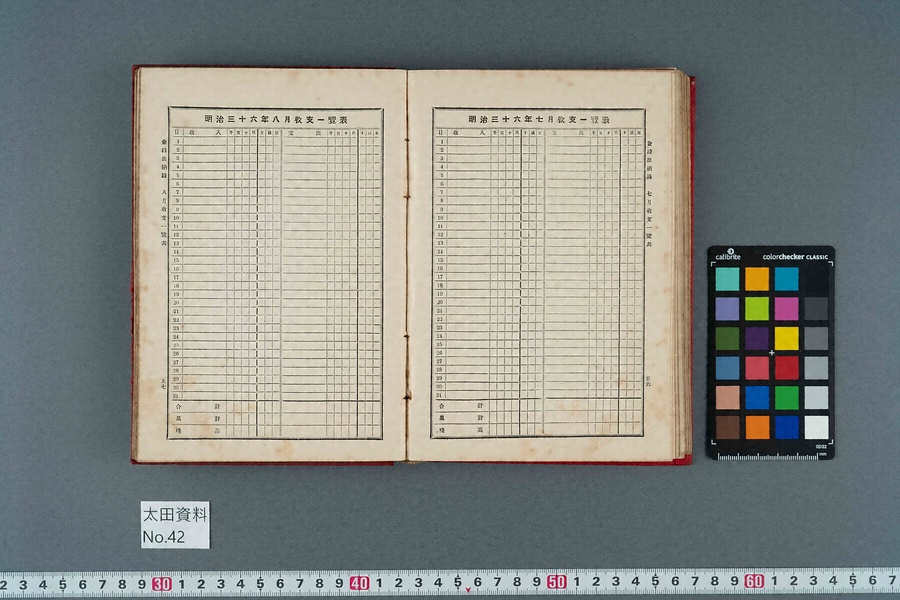 明治三十六年七月收支一覽表
日 收 入 千 百 十 円 十 錢 厘 支 出 千 百 十 円 十 錢 厘
1
2
3
4
5
6
7
8
9
10
11
12
13
14
15
16
17
18
19
20
21
22
23
24
25
26
27
28
29
30
31
合 計
累 計
殘 高
金錢出納錄 七月收支一覽表
五六
明治三十六年八月收支一覽表
日 收 入 千 百 十 円 十 錢 厘 支 出 千 百 十 円 十 錢 厘
1
2
3
4
5
6
7
8
9
10
11
12
13
14
15
16
17
18
19
20
21
22
23
24
25
26
27
28
29
30
31
合 計
累 計
殘 高
金錢出納錄 八月收支一覽表
五七
calibrite colorchecker CLASSIC
mm
太田資料
No.42
2 3 4 5 6 7 8 9 30 1 2 3 4 5 6 7 8 9 40 1 2 3 4 5 6 7 8 9 50 1 2 3 4 5 6 7 8 9 60 1 2 3 4 5 6 7